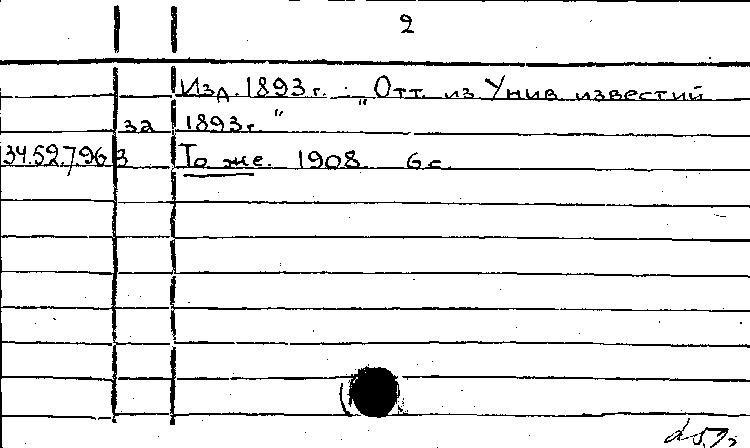 2
Изд. 1893г. : „Отт. из Унив известий
за 1893г."
34.52.7.96 3 То же. 1908. 6 с.